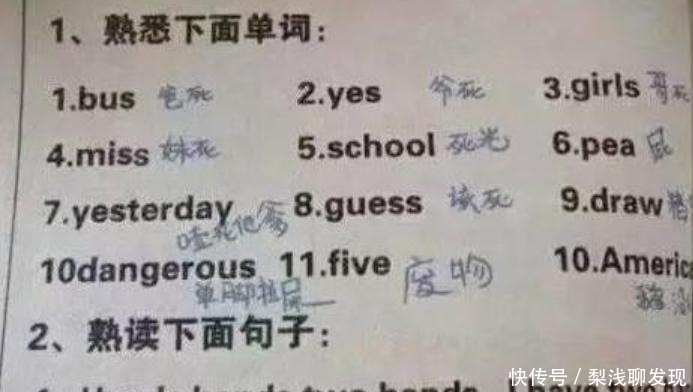 1、熟悉下面单词:
1.bus 爸死 2.yes 爷死 3.girls 哥死
4.miss 妹死 5.school 死光 6.pea 屁
7.yesterday 8.guess 该死 9.draw
噎死他爹
10dangerous 11.five 废物 10.Americ
单脚拉屎
2、熟读下面句子:
快传号/梨浅聊发现